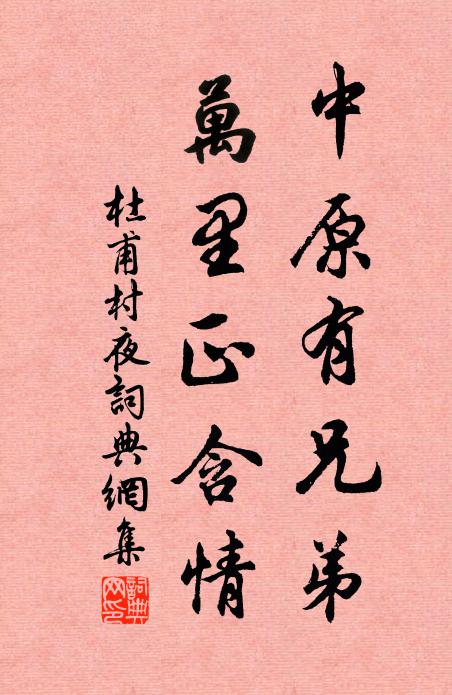 中原有兄弟
萬里正含情
杜甫村夜詞典網集
詞典網印